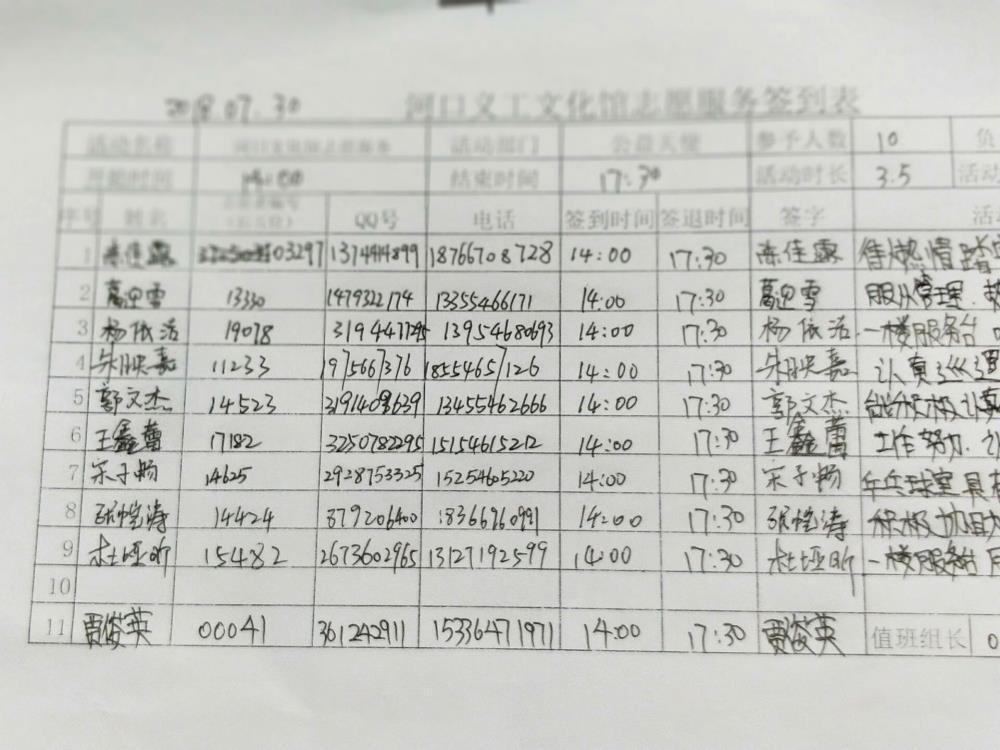 2018.07.30 河口义工文化馆志愿服务签到表
活动名称 河口文化馆志愿服务 活动部门 公益天使 参予人数 10 负
开始时间 14:00 结束时间 17:30 活动时长 3.5 活动
序号 姓名 QQ号 电话 签到时间 签退时间 签字 活
1 陈佳露 03297 1374414899 18766708728 14:00 17:30 陈佳露 待燃情踏
2 葛迎雪 13330 1479322174 13355466171 14:00 17:30 葛迎雪 服从管理.
3 杨依洁 19078 319447795 13954680693 14:00 17:30 杨依洁 一楼服务台
4 朱映嘉 11233 197566376 18554657126 14:00 17:30 朱映嘉 认真巡逻
5 郭文杰 14523 3191403639 13455462666 14:00 17:30 郭文杰 积极认真
6 王鑫蕾 17182 3250782295 15154615212 14:00 17:30 王鑫蕾 工作努力.认
7 宋子畅 14625 2928753325 15254605220 14:00 17:30 宋子畅 乒乓球室具
8 张恺涛 14424 879206400 18366960991 14:00 17:30 张恺涛 积极
9 杜垭昕 15482 2673602965 13127192599 14:00 17:30 杜垭昕 一楼服务台
10
11 贾俊英 00041 361242911 15336471971 14:00 17:30 贾俊英 值班组长 0